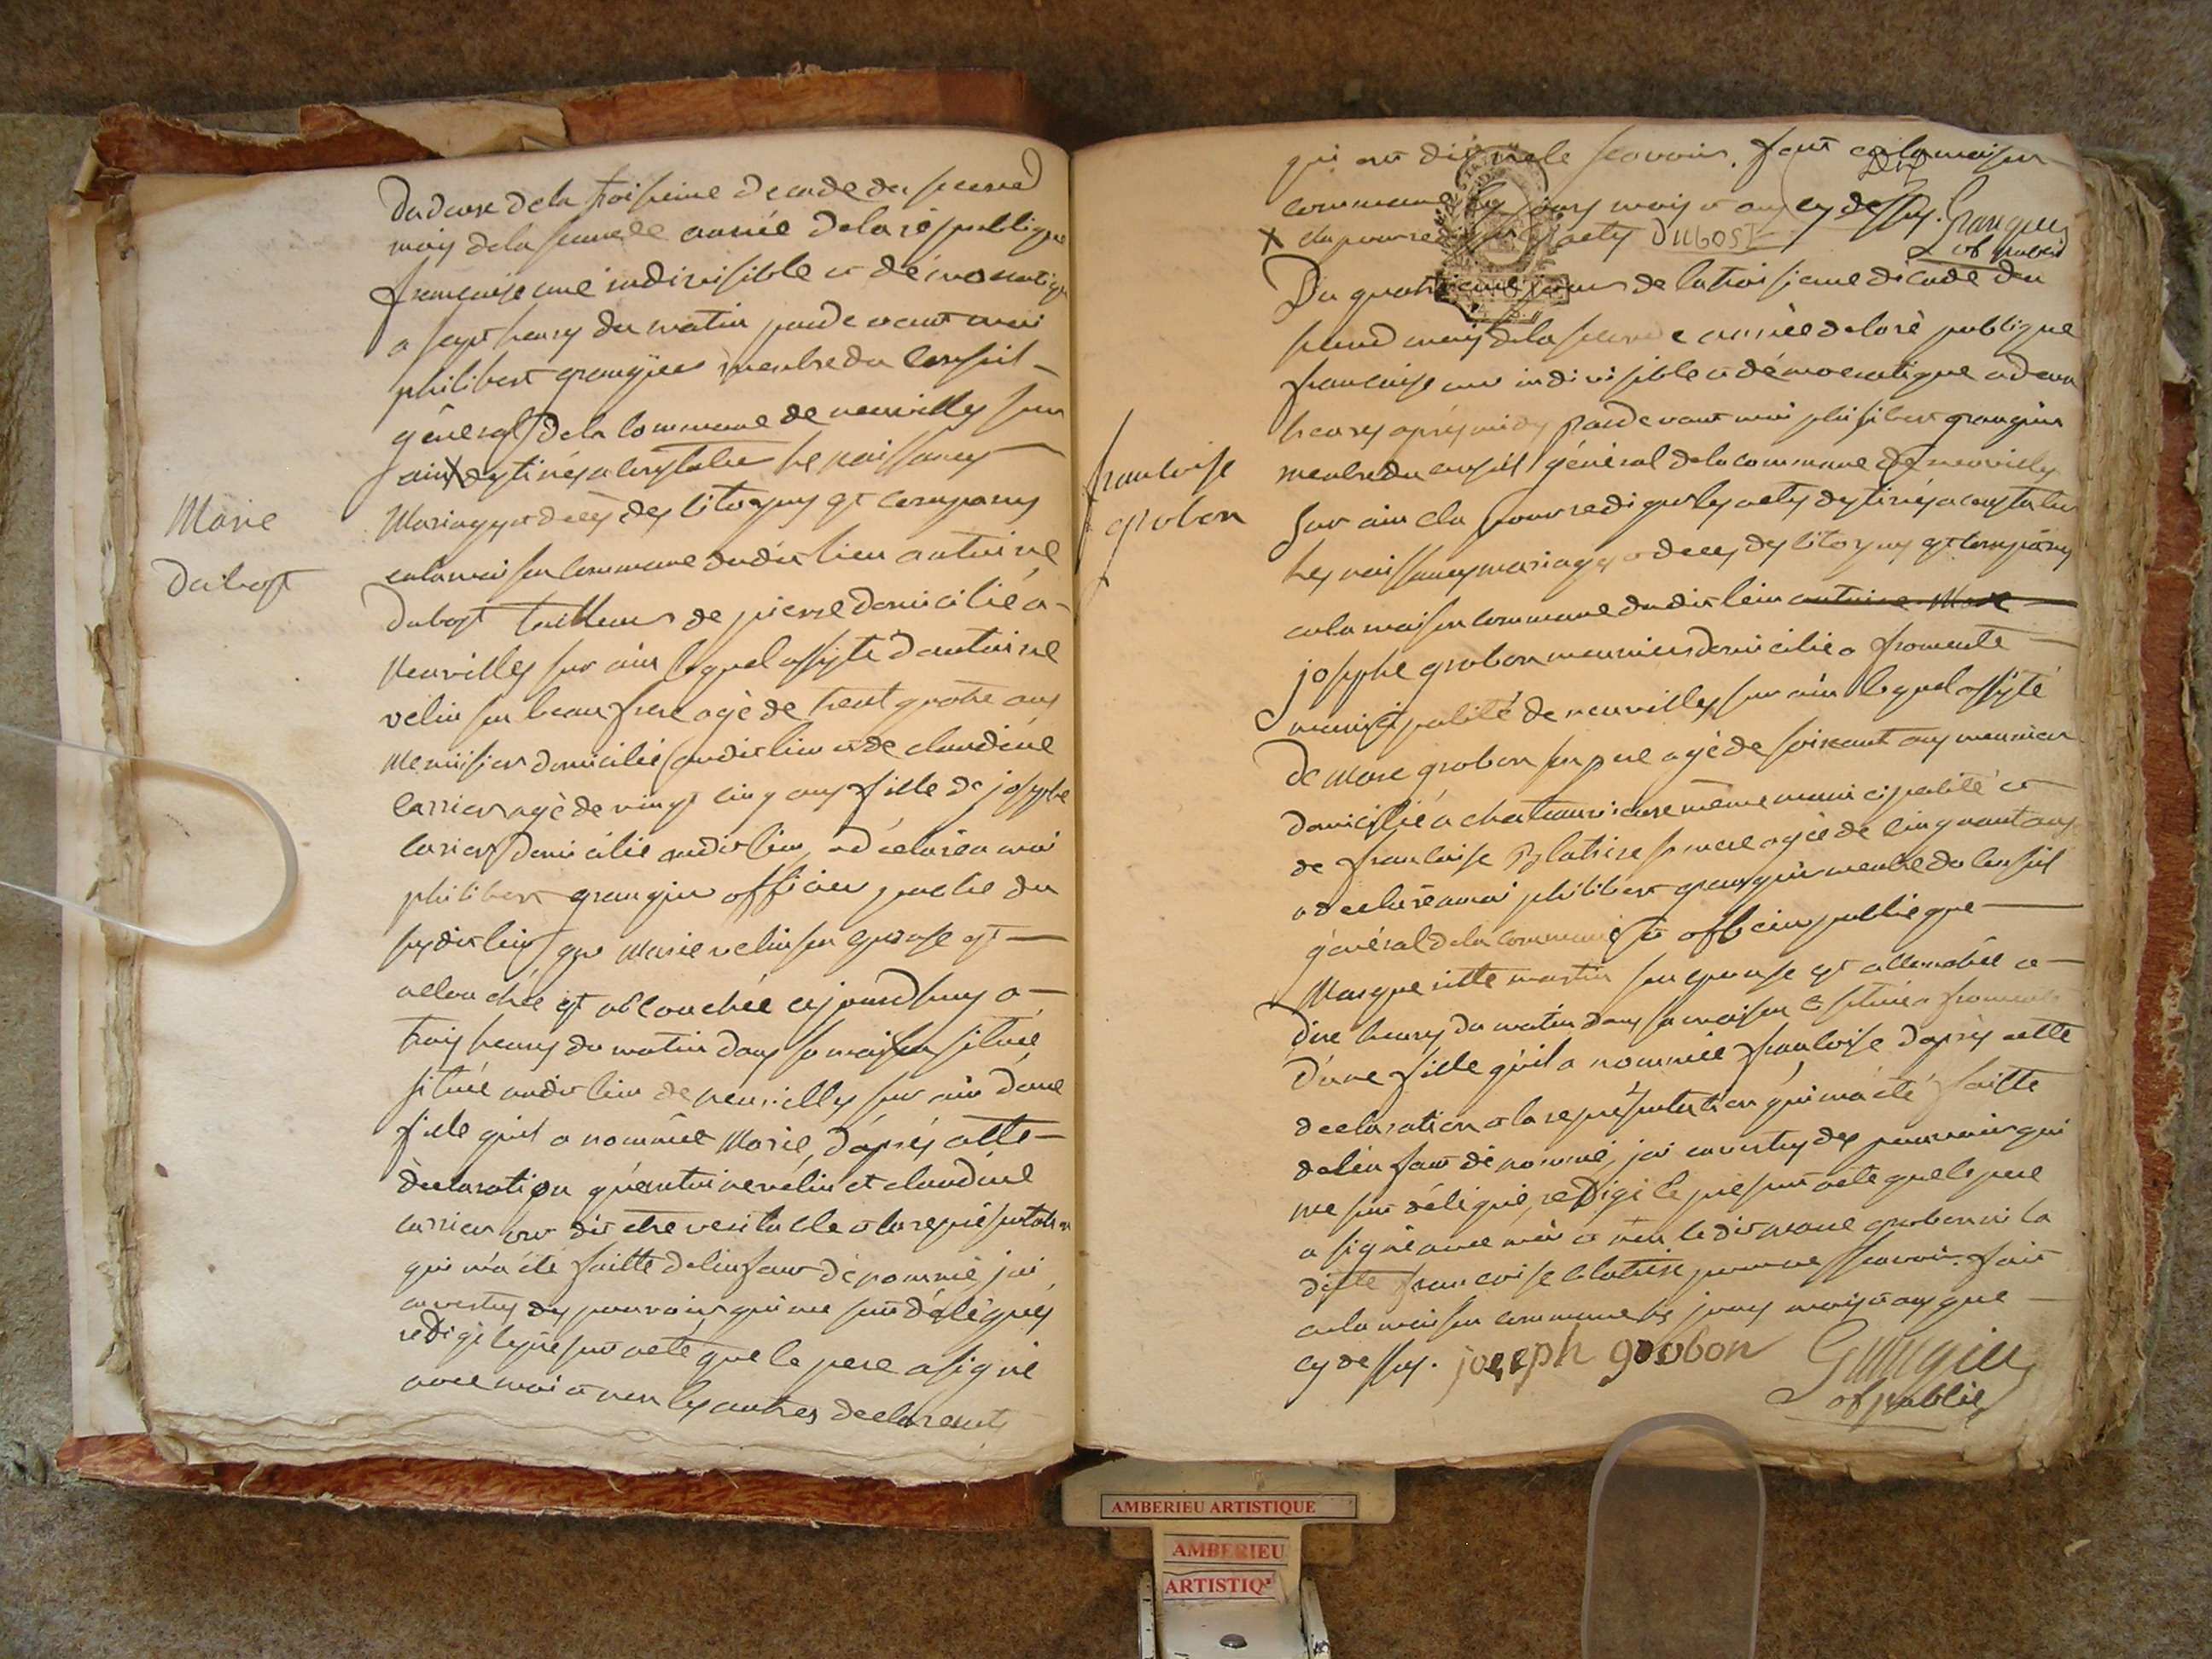 Marie
Dubost
Du douze de la troisieme decade du second
mois de la seconde année dela république
françaisse une indivisible et démocratique
a sept heurs du matin par de vant moi
philibert grangier membre du Conseil
général de la Commune de neuvilles sur
ain X destinés a constater les naissances
Mariages et décès des Citoyens et Comparus
en la maison Commune dudit lieu antoine
Dubost tailleur de pierre domicilié a
Neuvilles sur ain lequel assisté d'antoine
velin son beau frere agé de trent quatre ans
menuisier domicilié audit lieu et de claudine
carrier agé de vingt cinq ans fille de josephe
carier domicilié audit lieu, a déclaré a moi
philibert grangier officier publie du
susdit lieu que Marie velin son epouse est
accouchée est accouchée ce jourd'huy a
trois heurs du matin dans sa maison située
située audit lieu de neuvilles sur ain d'une
fille qu'il a nommée Marie, d'après cette
déclaration qu'antoine velin et claudine
carrier ont dit etre veritable et la représentation
qui m'a été faitte de l'enfant dénommé, j'ai
en vertus des pouvoirs qui me sont délégués
rédigé le présent acte que le pere a signé
avec moi et non les autres declarents
qui ont dit ne le scavoir. fait en la maison
commune les jours mois et an cy dessus. Grangier
X élu pour rediger les actes DUBOST of public
françoise
grobon
Du quatrieme jour de la troisieme décade du
second mois de la seconde année de la ré publique
francaise une indivisible et démocratique a deux
heures après midy par de vant moi philibert grangier
membre du conseil général de la commune de neuvilles
sur ain élu pour rediger les actes destinés a constater
les naissances mariages et deces des citoyens est comparus
en la maison commune dudit lieu antoine Mare
josephe grobon meunier domicilié a fromente
municipalité de neuvilles sur ain lequel assisté
de Marc grobon son pere agé de soixant ans meunier
domicilié a chateauvieux même municipalité et
de francoise Platrire sa mere agée de cinquant ans
a déclaré a moi philibert grangier membre du conseil
général de la commune et officier publique
Margueritte martin son epouse est accouchée a
dix heures du matin dans sa maison située a fromente
d'une fille qu'il a nommée francoise d'après cette
declaration et la représentation qui m'a été faitte
de l'enfant dénommé, j'ai en vertus des pouvoirs qui
me sont délégué, rédigé le présent acte que le pere
a signé avec moi et non le dit marc grobon ni la
ditte francoise Platrire pour ne scavoir. fait
en la maison commune les jours mois et an que
cy dessus. joseph grobon Grangier
of public
AMBERIEU ARTISTIQUE
AMBERIEU
ARTISTIQ